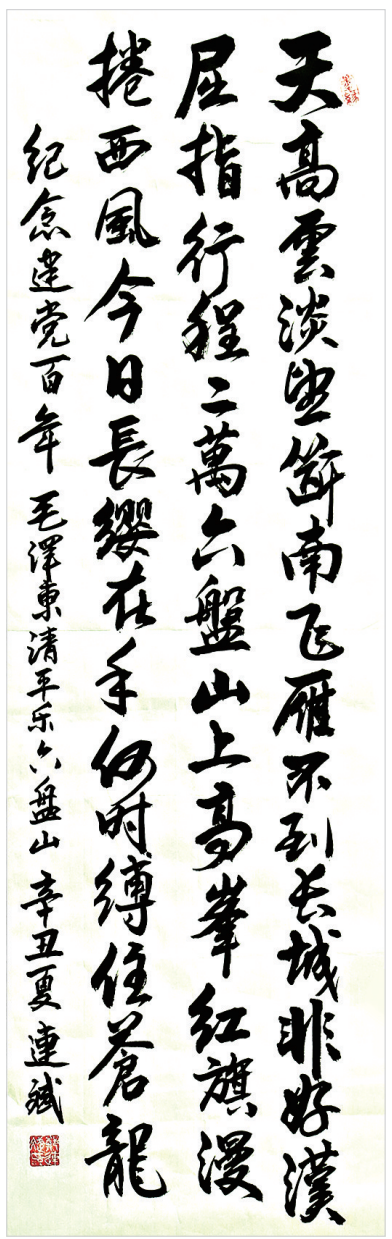 天高雲淡望斷南飞雁不到长城非好漢
屈指行程二萬六盤山上高峯红旗漫
捲西風今日長纓在手何时缚住蒼龍
纪念建党百年 毛澤東清平乐六盤山 辛丑夏 連斌